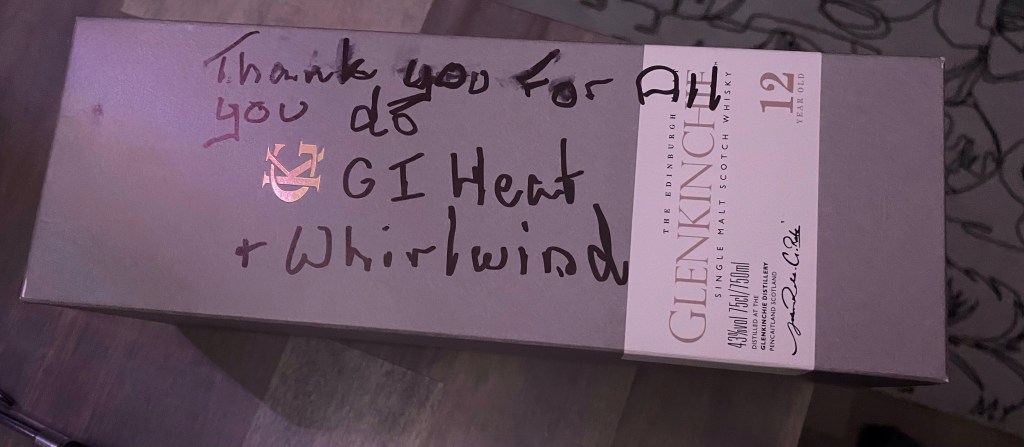 Thank you for
you do
GI Heat
+ Whirlwind
GK
THE EDINBURGH
GLENKINCHIE
SINGLE MALT SCOTCH WHISKY
43%vol 75cl/750ml
DISTILLED AT THE
GLENKINCHIE DISTILLERY
PENCAITLAND SCOTLAND
12
YEAR OLD
Mr